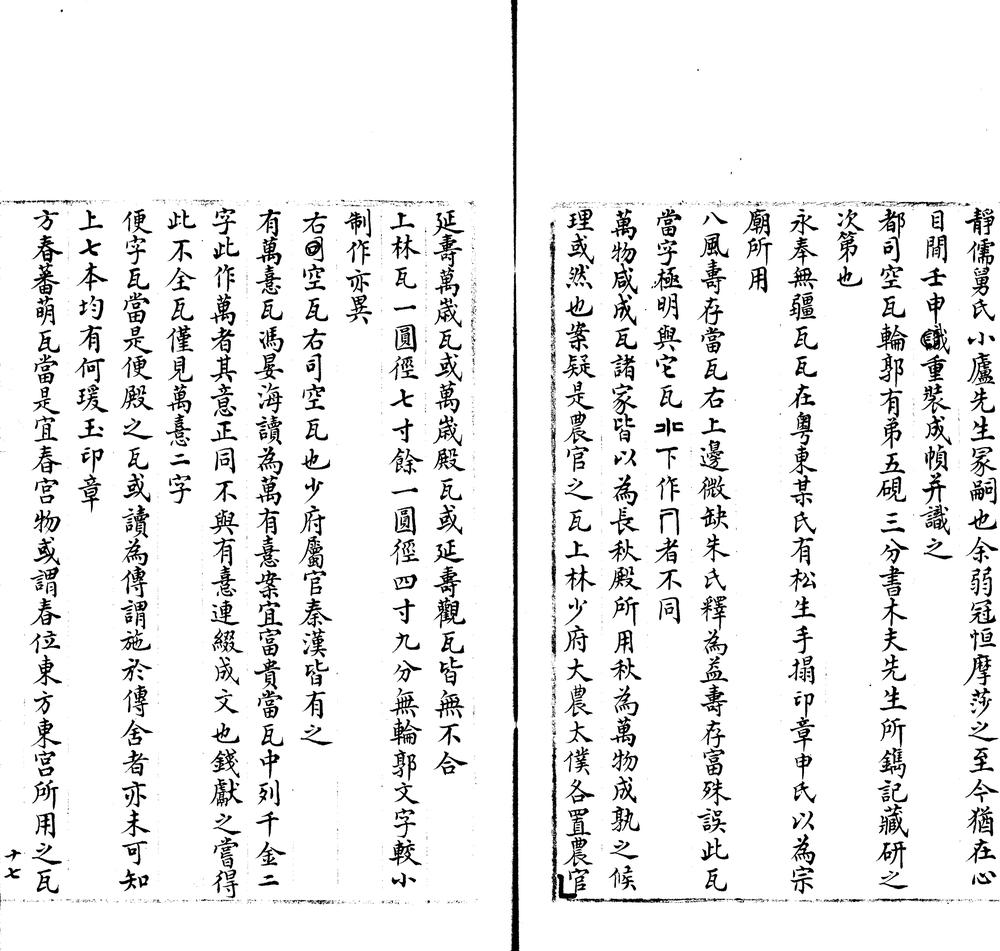 靜儒舅氏小廬先生冢嗣也余弱冠恒摩莎之至今猶在心
目間壬申重裝成幀并識之
都司空瓦輪郭有弟五硯三分書木夫先生所鐫記藏研之
次第也
永奉無疆瓦瓦在粵東某氏有松生手搨印章申氏以為宗
廟所用
八風壽存當瓦右上邊微缺朱氏釋為益壽存富殊誤此瓦
當字極明與它瓦下作者不同
萬物咸成瓦諸家皆以為長秋殿所用秋為萬物成孰之候
理或然也案疑是農官之瓦上林少府大農太僕各置農官
延壽萬歲瓦或萬歲殿瓦或延壽觀瓦皆無不合
上林瓦一圓徑七寸餘一圓徑四寸九分無輪郭文字較小
制作亦異
右空瓦右司空瓦也少府屬官秦漢皆有之
有萬憙瓦馮晏海讀為萬有憙案宜富貴當瓦中列千金二
字此作萬者其意正同不與有憙連綴成文也錢獻之嘗得
此不全瓦僅見萬憙二字
便字瓦當是便殿之瓦或讀為傳謂施於傳舍者亦未可知
上七本均有何瑗玉印章
方春蕃萌瓦當是宜春宮物或謂春位東方東宮所用之瓦
十七